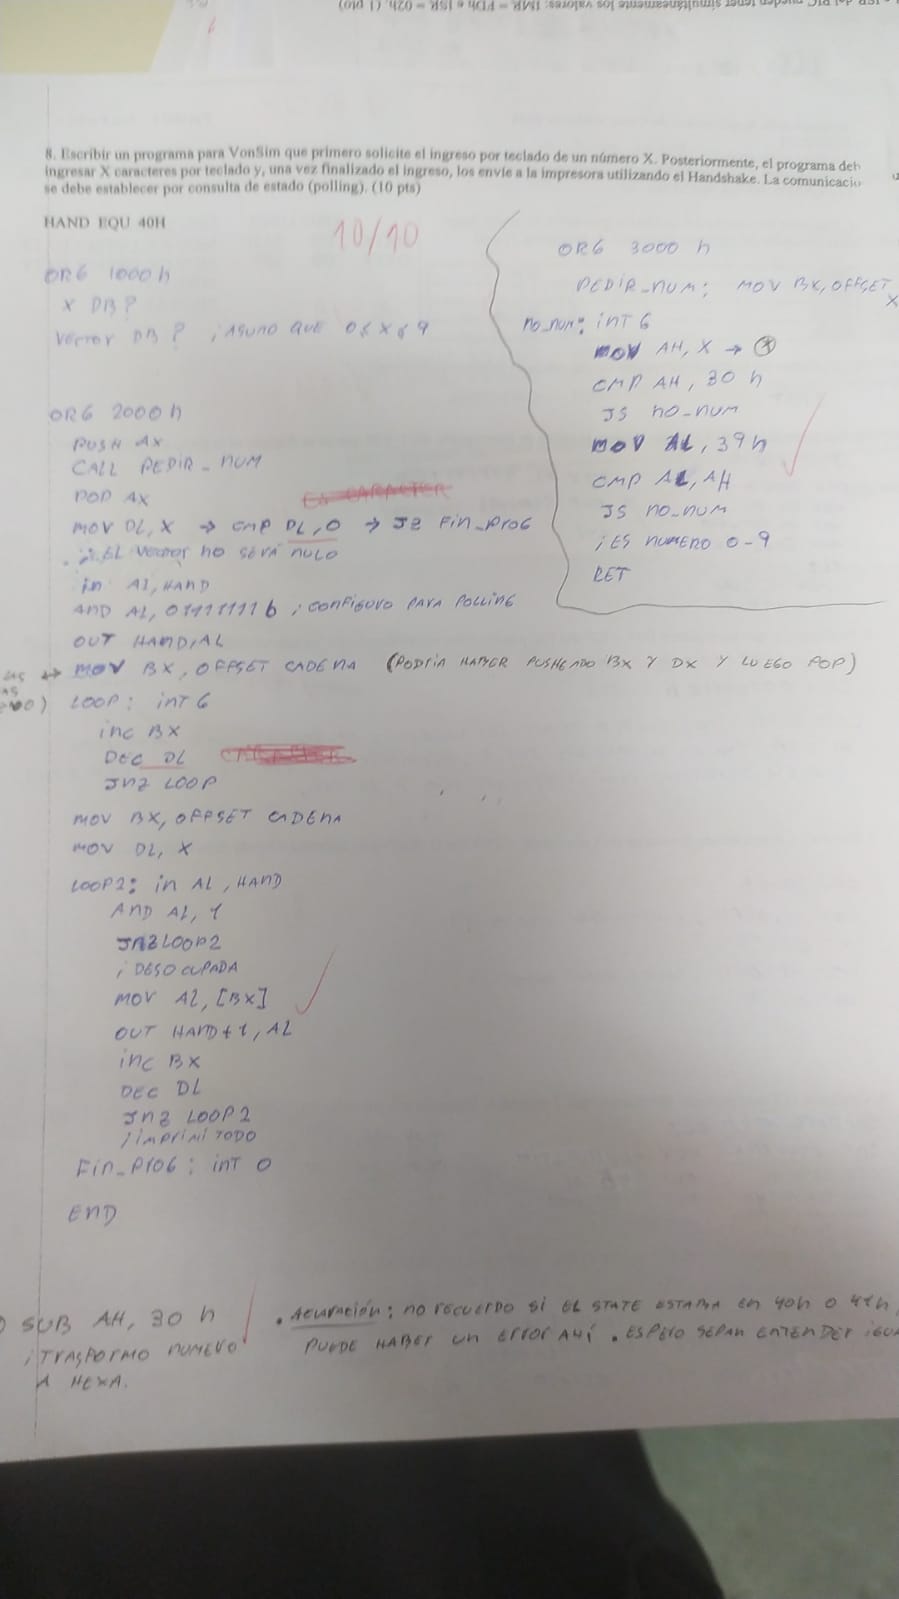 ISR del PIC pueden tener simultáneamente los valores: IMR = FDh e ISR = 02h. (1 pto)
8. Escribir un programa para VonSim que primero solicite el ingreso por teclado de un número X. Posteriormente, el programa deb
ingresar X caracteres por teclado y, una vez finalizado el ingreso, los envíe a la impresora utilizando el Handshake. La comunicació
se debe establecer por consulta de estado (polling). (10 pts)
HAND EQU 40H
10/10
ORG 1000h
X DB ?
Vector DB ? ; ASUMO QUE 0≤X≤9
ORG 2000h
PUSH AX
CALL PEDIR_NUM
POP AX
MOV DL, X → CMP DL, 0 → JZ Fin_PROG
∴ EL Vector no SERÁ NULO
in AL, HAND
AND AL, 01111111b ; CONFIGURO PARA POLLING
OUT HAND, AL
MOV BX, OFFSET CADENA (PODRÍA HABER PUSHEADO BX Y DX Y LUEGO POP)
LOOP: int 6
inc BX
DEC DL
JNZ LOOP
MOV BX, OFFSET CADENA
MOV DL, X
LOOP2: in AL, HAND
AND AL, 1
JNZ LOOP2
; DESOCUPADA
MOV AL, [BX]
OUT HAND+1, AL
inc BX
DEC DL
JNZ LOOP2
; imprimí TODO
Fin_PROG: int 0
END
ORG 3000h
PEDIR_NUM: MOV BX, OFFSET X
no_num: int 6
MOV AH, X → *
CMP AH, 30h
JS no_num
MOV AL, 39h
CMP AL, AH
JS no_num
; ES NUMERO 0-9
RET
SUB AH, 30h
; TRASFORMO NUMERO
A HEXA.
• Aclaración: no RECUERDO SI EL STATE ESTABA En 40h O 41h
PUEDE HABER Un ERROR AHÍ. ESPERO SEPAN ENTENDER